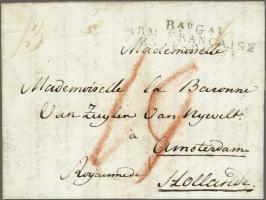 BAU GAL
ARM FRANCAISE
Mademoiselle
Mademoiselle la Baronne
Van Zuylen Van Nyevelt
à
Amsterdam
Royaume de Hollande